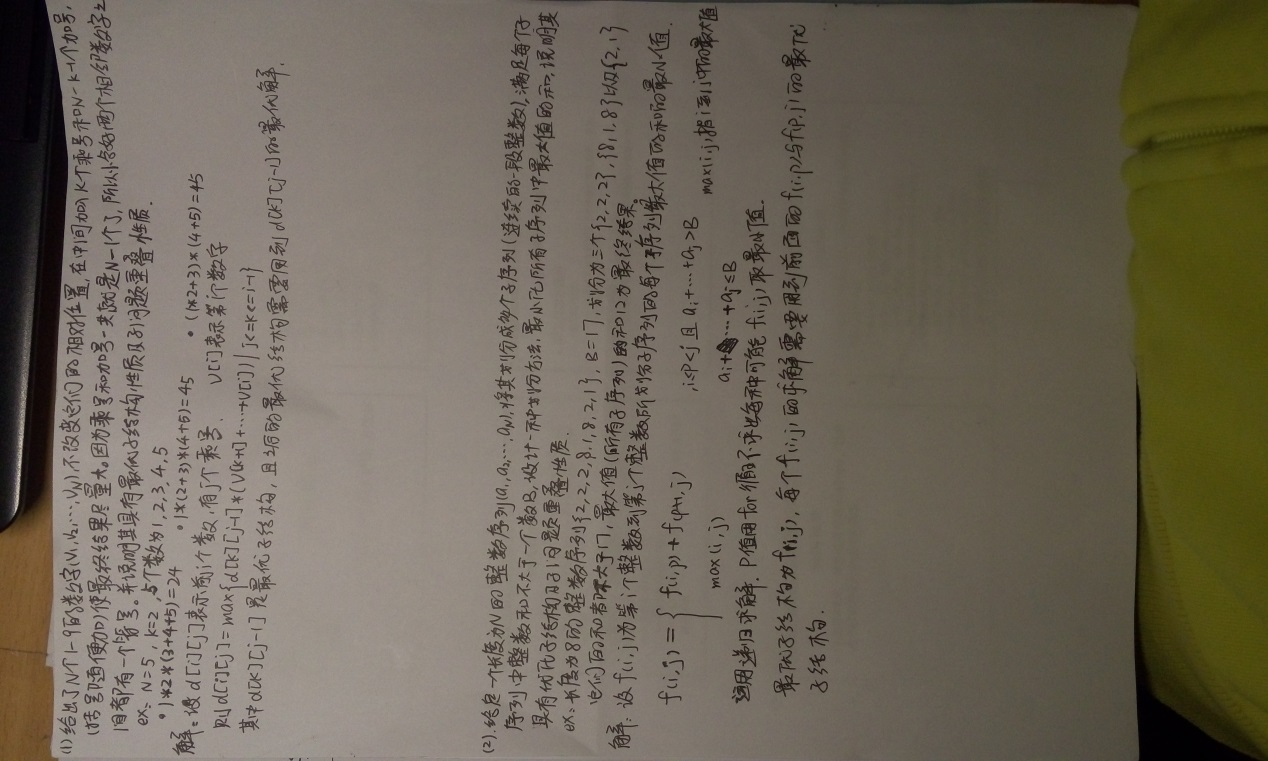 (1)给出了N个1-9的数字(V1,V2,…,VN),不改变它们的相对位置,在中间加入K个乘号和N-K-1个加号,
(括号随便加)使最终结果尽量大。因为乘号和加号一共就是N-1个了,所以恰好两个相邻数字之
间都有一个符号。并说明其具有最优子结构性质及子问题重叠性质.
ex: N=5, K=2, 5个数为1,2,3,4,5
• 1*2*(3+4+5)=24 • 1*(2+3)*(4+5)=45 • (1*2+3)*(4+5)=45
解:设d[i][j]表示前i个数,有j个乘号. V[i]表示第i个数字
则d[i][j]=max{d[k][j-1]*(V[k+1]+…+V[i])|j<=k<=i-1}
其中d[k][j-1]是最优子结构,且之后的最优结构需要用到d[k][j-1]的最优解.
(2).给定一个长度为N的整数序列(a1,a2,…,aN),将其划分成多个子序列(连续的一段整数),满足每个子
序列中整数和不大于一个数B,设计一种划分方法,最小化所有子序列中最大值的和.说明其
具有优化子结构及子问题重叠性质.
ex:长度为8的整数序列{2,2,2,8,1,8,2,1}, B=17,划分为三个{2,2,2},{8,1,8}以及{2,1}
它们的和者都不大于17,最大值(所有子序列)的和12为最终结果.
解:设f(i,j)为第i个整数到第j个整数所划分子序列的每个子序列最大值的和的最小值.
f(i,j)={ f(i,p)+f(p+1,j) ,i≤p<j且ai+…+aj>B
max(i,j) ai+…+aj≤B max(i,j)指i到j中的最大值
运用递归求解.P值用for循环求出每种可能f(i,j)取最小值.
最优子结构为f(i,j),每个f(i,j)的求解需要用到前面的f(i,p)与f(p,j)的最优
子结构.